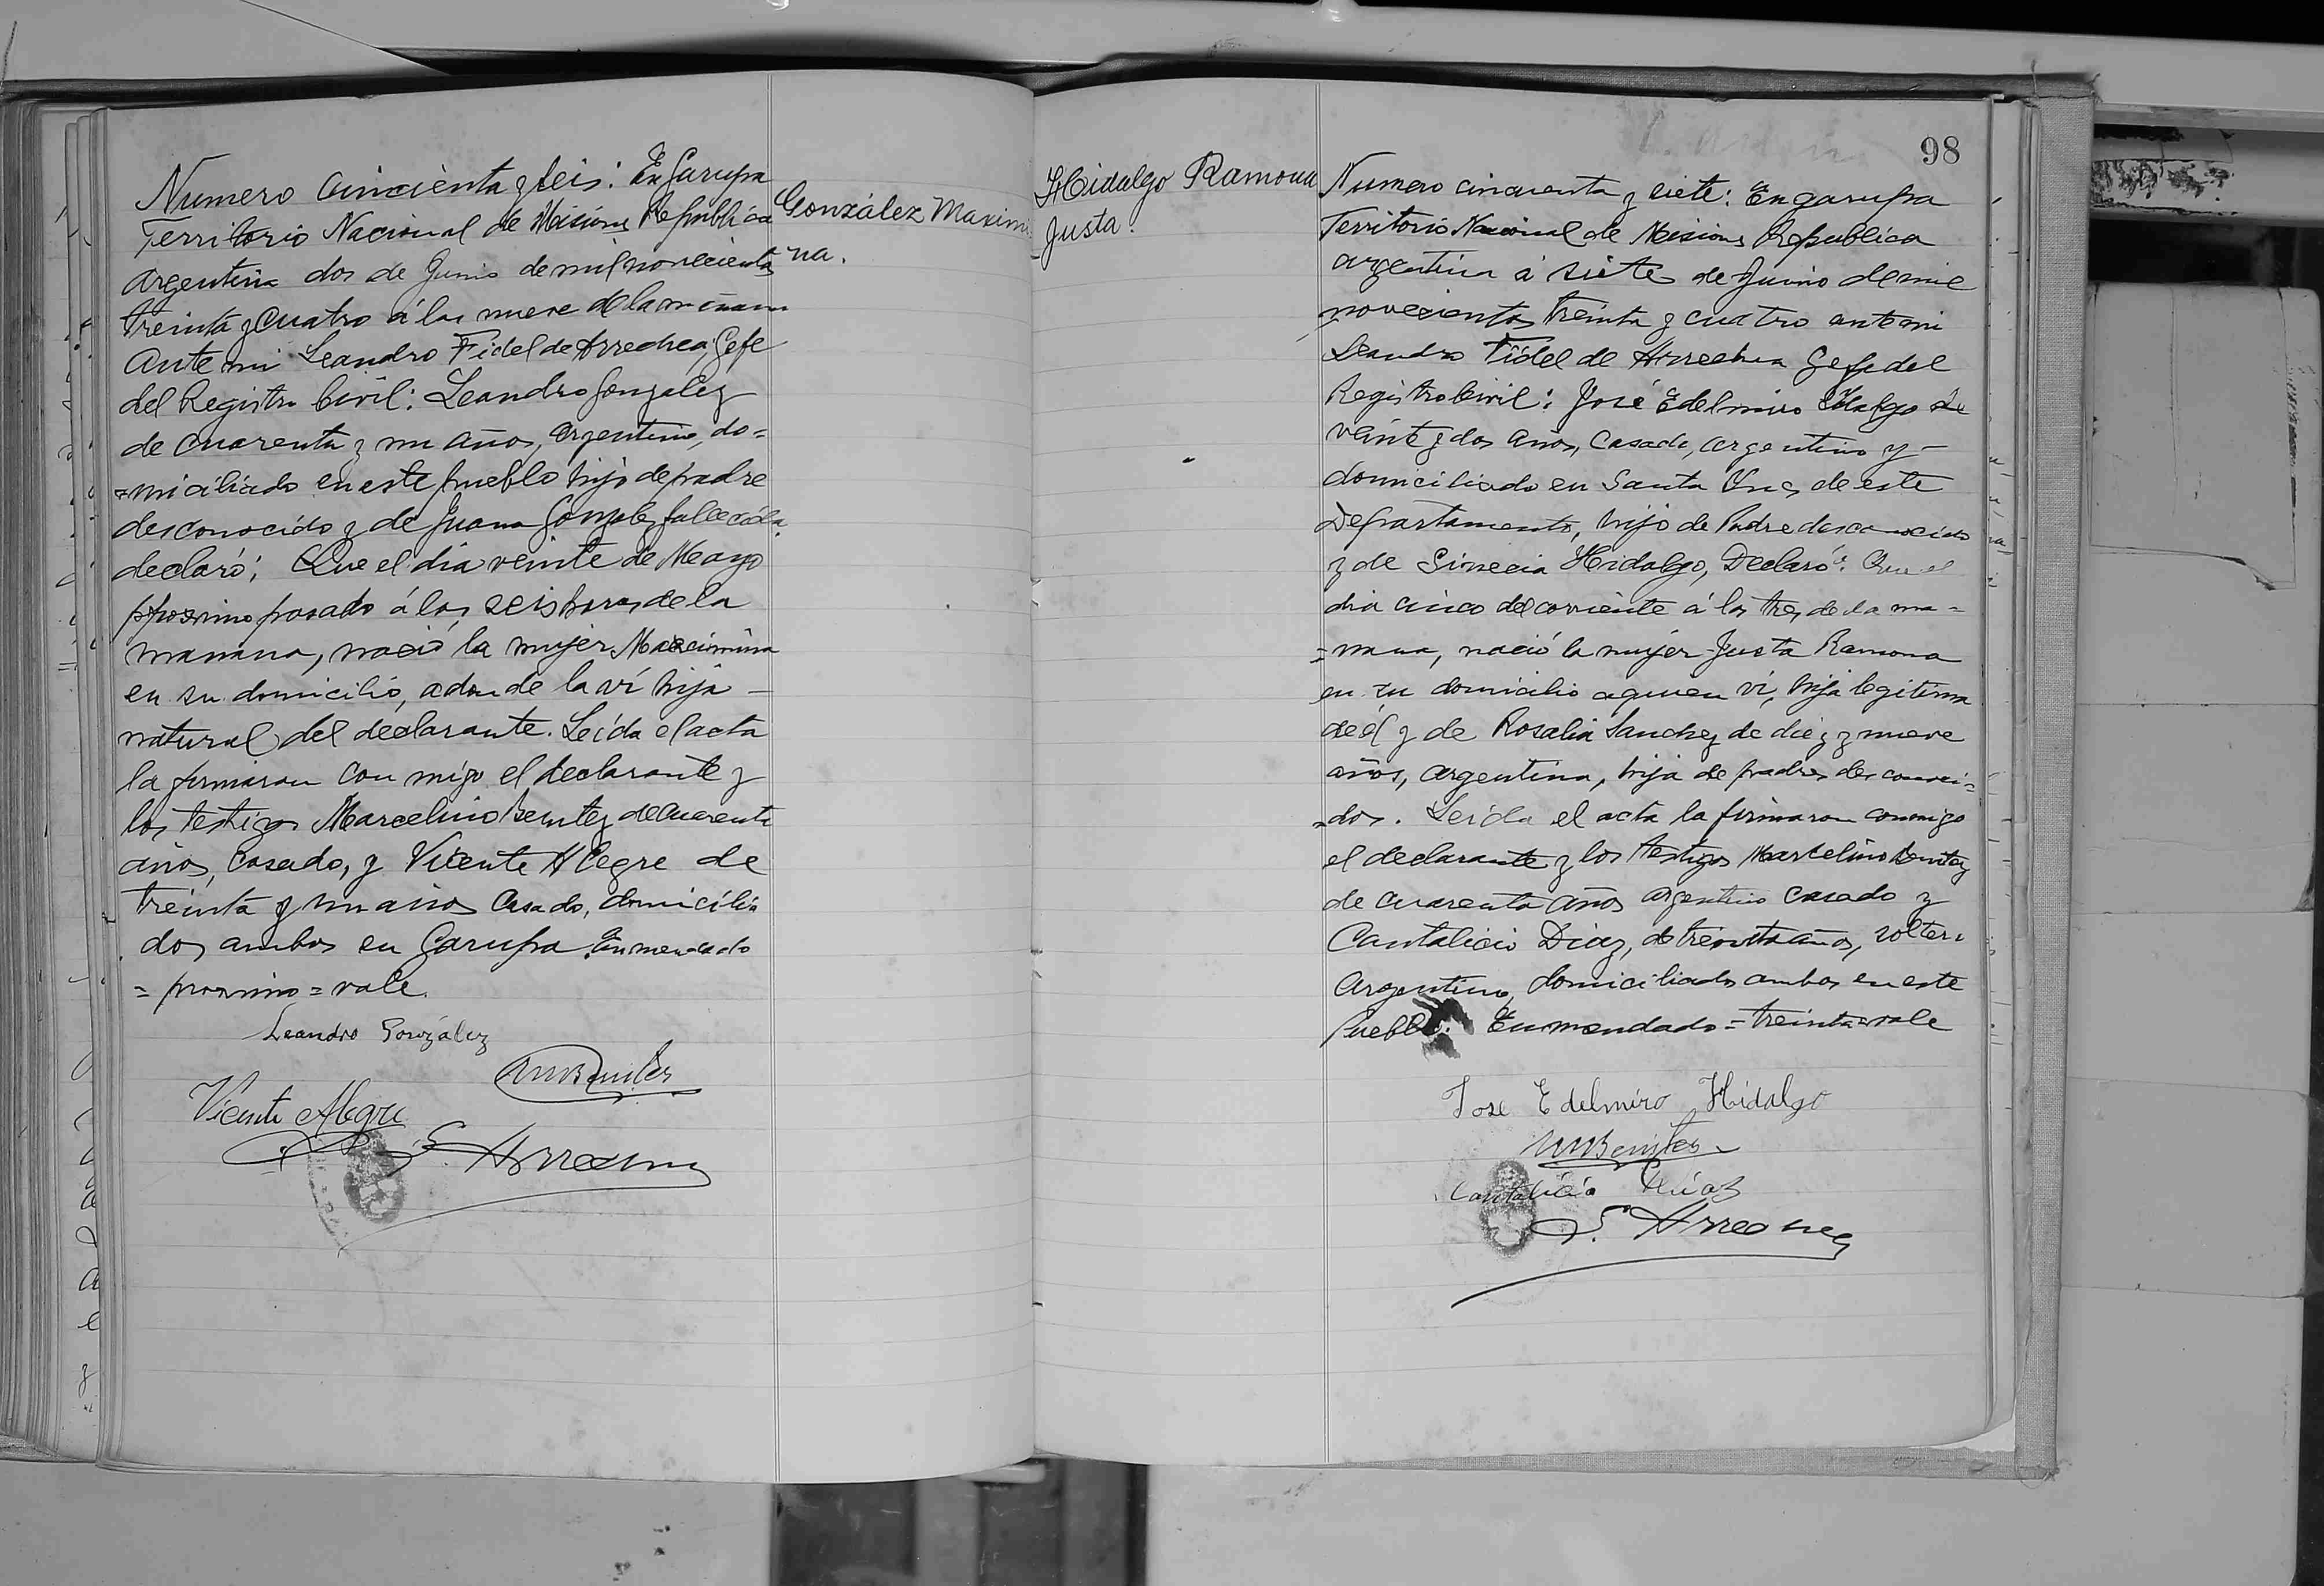 Numero Cincuenta y seis: En Garupa
Territorio Nacional de Misiones Republica
Argentina dos de Junio de mil novecientos
treinta y cuatro á las nueve de la mañana
Ante mi Leandro Fidel de Arrechea, Gefe
del Registro Civil: Leandro Gonzalez
de cuarenta y un años, argentino, do=
=miciliado en este pueblo hijo de padre
desconocido y de Juana Gonzalez fallecida.
declaró: Que el dia veinte de Mayo
proximo pasado á las seis horas de la
manana, nació la mujer Maximina
en su domicilio, adonde la ví hija —
natural del declarante. Leída el acta
la firmaron con migo el declarante y
los testigos Marcelino Benitez de cuarenta
años, casado, y Vicente Alegre de
treinta y un años casado, domicilia
dos ambos en Garupa. Enmendado
= proximo = vale.
Leandro González
MBenites
Vicente Alegre
F. Arrechea
González Maximi
na.
98
Hidalgo Ramona
Justa.
Numero cincuenta y siete: En garupa
Territorio Nacional de Misiones Republica
argentina á siete de Junio de mil
novecientos treinta y cuatro ante mi
Leandro Fidel de Arrechea Gefe del
Registro Civil: José Edelmiro Hidalgo de
veinte y dos años, casado, argentino y —
domiciliado en Santa Ines de este
Departamento, hijo de Padre desconocido
y de Sinecia Hidalgo, Declaró: Que el
dia cinco del corriente á las tres de la ma=
=nana, nació la mujer Justa Ramona
en su domicilio a quien vi, hija legitima
de él y de Rosalia Sanchez de diez y nueve
años, argentina, hija de padres desconoci=
=dos. Leida el acta la firmaron conmigo
el declarante y los testigos Marcelino Benitez
de cuarenta años argentino casado y
Cantalicio Diaz, de treinta años, soltero
Argentino, domiciliados ambos en este
Pueblo. Enmendado = treinta = vale
Jose Edelmiro Hidalgo
MBenites
Cantalicio Diaz
F. Arrechea